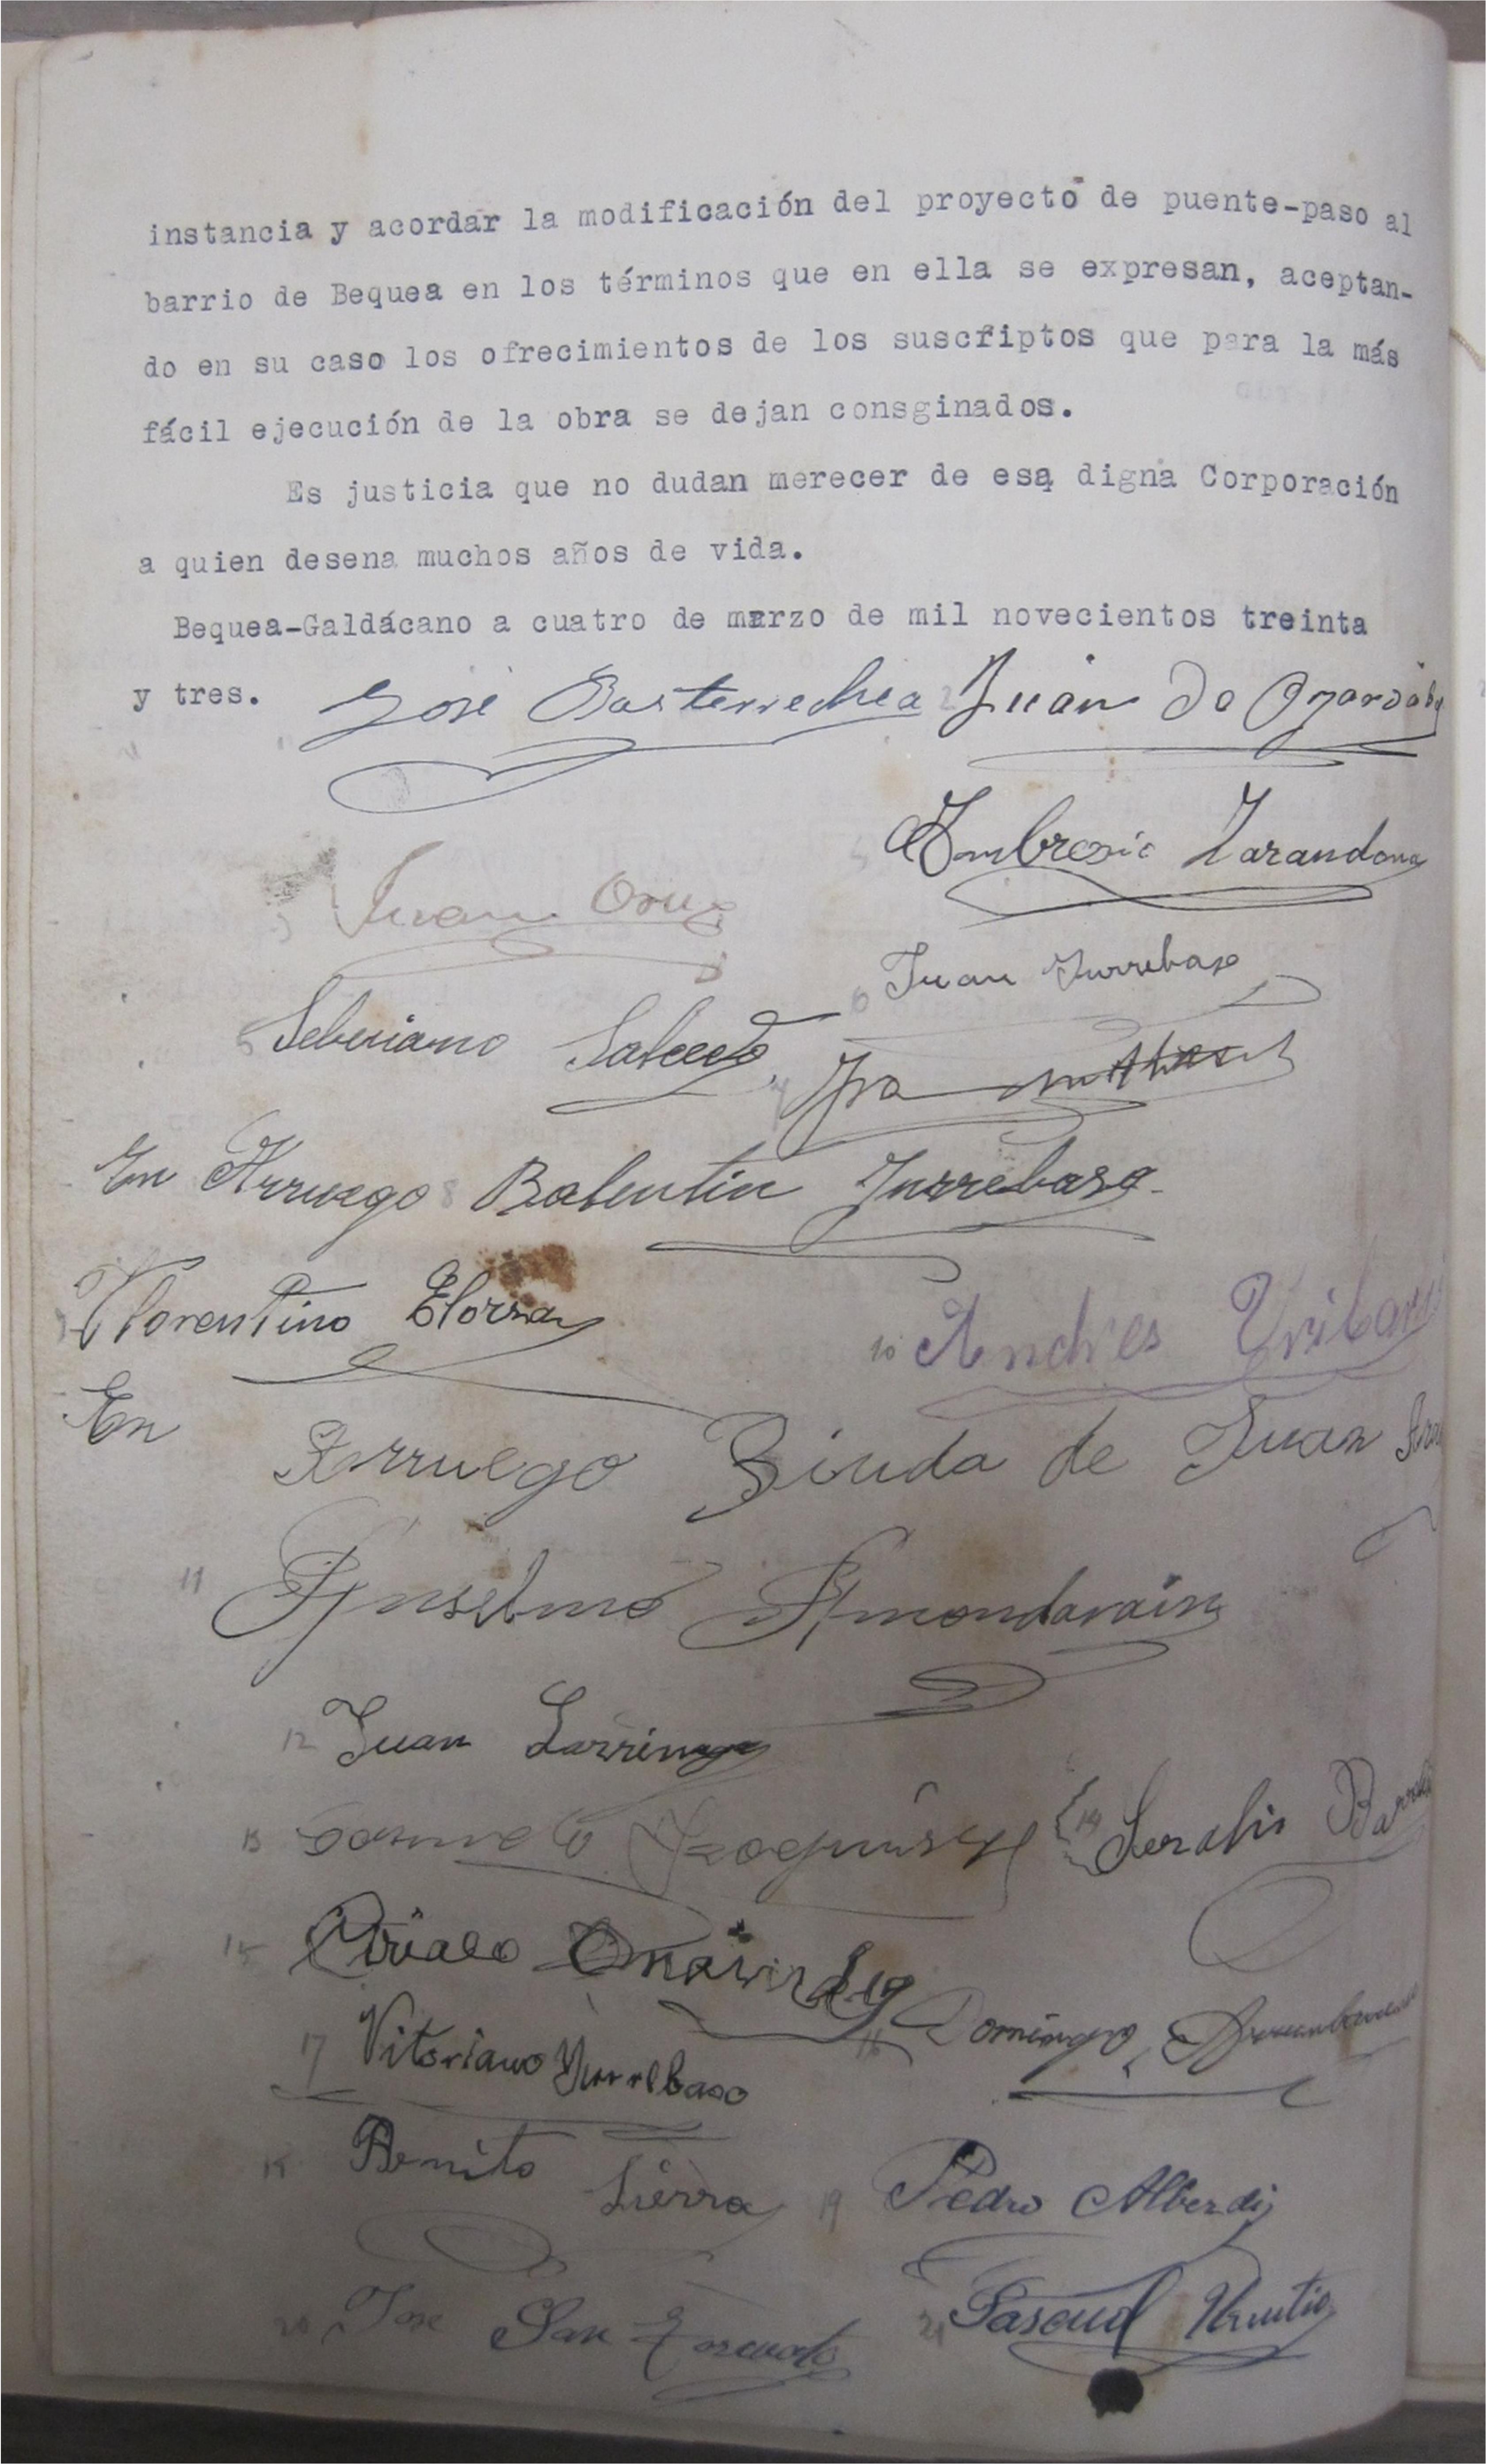 instancia y acordar la modificación del proyecto de puente-paso al
barrio de Bequea en los términos que en ella se expresan, aceptan-
do en su caso los ofrecimientos de los suscriptos que para la más
fácil ejecución de la obra se dejan consginados.
Es justicia que no dudan merecer de esa digna Corporación
a quien desena muchos años de vida.
Bequea-Galdácano a cuatro de marzo de mil novecientos treinta
y tres. José Basterrechea 2 Juan De
4 Ambrosio Zarandona
3 Juan
6 Juan Yurrebaso
5 Seberiano Salcedo
En Arruego 8 Balentin Yurrebaso
Florentino Elorza
10 Andres
En
Arruego Biuda de Juan
11 Anselmo Amondarain
12 Juan Larrinaga
13 14 Serafin
15 Ciriaco
16 Domingo
17 Vitoriano Yurrebaso
18 Benito Sierra 19 Pedro Alberdi
20 Jose San 21 Pascual Urrutia